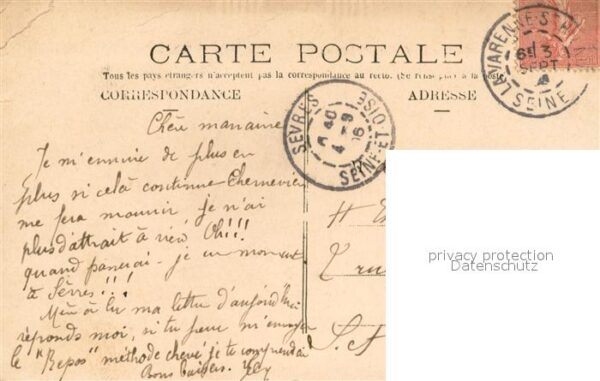 CARTE POSTALE
Tous les pays étrangers n'acceptent pas la correspondance au recto. (Se renseigner à la poste)
CORRESPONDANCE
ADRESSE
LA VARENNE-ST-H
6E 3
SEPT
SEINE
SEVRES
40
4 - 9
06
SEINE-ET-OISE
Chère marraine
Je m'ennuie de plus en
plus si celà continue
me fera mourir, je n'ai
plus d'attrait à rien, Oh!!!
quand passerai-je un moment
à Sèvres!!!
lu ma lettre d'aujourd'hui
réponds moi, si tu peux m'envoyer
le "Repos" méthode je te
Bons baisers.
privacy protection
Datenschutz